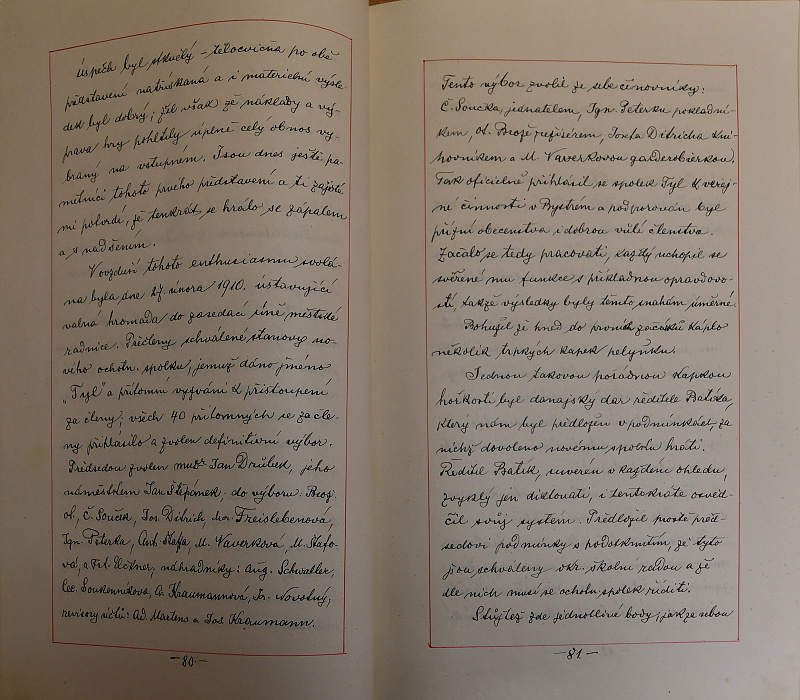 úspěch byl skvělý – tělocvična po obě
představení natřískaná a i materielní výsle-
dek byl dobrý; žel však že náklady a vý-
prava hry pohltily úplně celý obnos vy-
braný na vstupném. Jsou dnes ještě pa-
mětníci tohoto prvého představení a ti zajisté
mi potvrdí, že tenkrát se hrálo se zápalem
a s nadšením.
V ovzduší tohoto enthusiasmu svolá-
na byla dne 27. února 1910. ustavující
valná hromada do zasedací síně městské
radnice. Přečteny schválené stanovy no-
vého ochotn. spolku, jemuž dáno jméno
„Tyl" a přítomní vyzváni k přistoupení
za členy; všech 40 přítomných se za čle-
ny přihlásilo a zvolen definitivní výbor.
Předsedou zvolen mudr Jan Drůbek, jeho
náměstkem Jan Štěpánek; do výboru: Brož
ot., Č. Souček, Jos Ditrich, Mar. Freislebenová,
Ign. Peterka, Ant. Štafa, M. Vaverková, M. Štafo-
vá, a Frt. Elčkner, náhradníky: Aug. Schwaller,
Cec. Soukeníková, A. Kraumannová, Fr. Novotný;
revisory účtů: Ad. Martens a Jos Kraumann.
– 80 –
Tento výbor zvolil ze sebe činovníky:
Č. Součka, jednatelem, Ign. Peterku pokladní-
kem, ot. Brože režisérem, Josefa Ditricha kni-
hovníkem a M. Vaverkovou garderobiérkou.
Tak oficielně přihlásil se spolek Tyl k veřej-
né činnosti v Bystrém a podporován byl
přízní obecenstva i dobrou vůlí členstva.
Začalo se tedy pracovati, každý uchopil se
svěřené mu funkce s příkladnou opravdovo-
stí, takže výsledky byly těmto snahám úměrné.
Bohužel že hned do prvních začátků káplo
několik trpkých kapek pelyňku.
Jednou takovou pořádnou kapkou
hořkosti byl danajský dar ředitele Batíka,
který nám byl předložen v podmínkách, za
nichž dovoleno novému spolku hráti.
Ředitel Batík, suverén v každém ohledu,
zvyklý jen diktovati, i tentokráte osvěd-
čil svůj systém. Předložil prostě před-
sedovi podmínky s podotknutím, že tyto
jsou schváleny okr. školní radou a že
dle nich musí se ochotn. spolek říditi.
Stůjtež zde jednotlivé body, jak za sebou
– 81 –